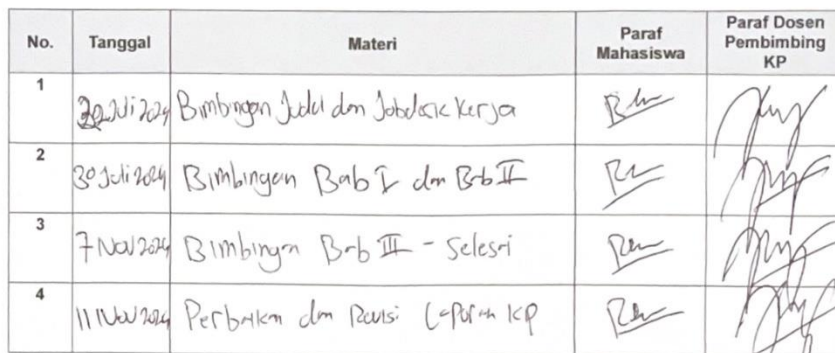 No. Tanggal Materi Paraf Mahasiswa Paraf Dosen Pembimbing KP
1 Juli 2024 Bimbingan Judul dan Jobdesk Kerja
2 30 Juli 2024 Bimbingan Bab I dan Bab II
3 7 Nov 2024 Bimbingan Bab III - Selesai
4 11 Nov 2024 Perbaikan dan Revisi Laporan KP